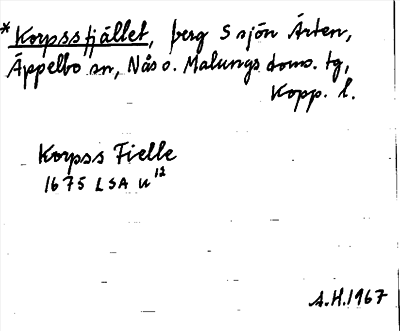 *Korpssfjället, berg S sjön Ärten,
Äppelbo sn, Nås o. Malungs doms. tg,
Kopp. l.
Korpss Fielle
1675 LSA U 12
A.H.1967